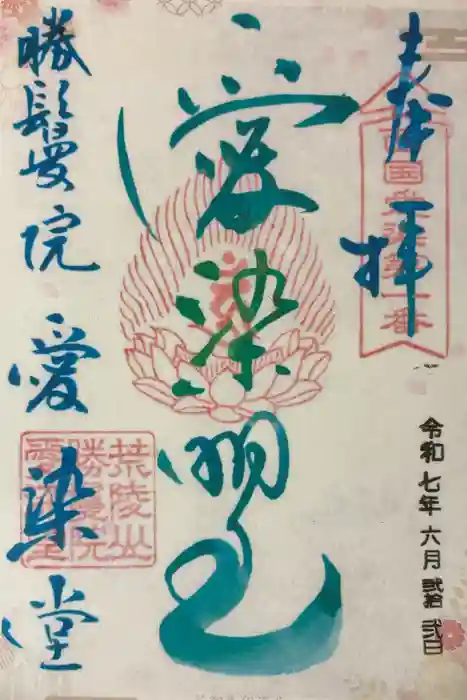 奉拝
西国愛染第一番
令和七年 六月 弐拾 弐日
愛染明王
勝鬘院 愛染堂
荒陵山
勝鬘院